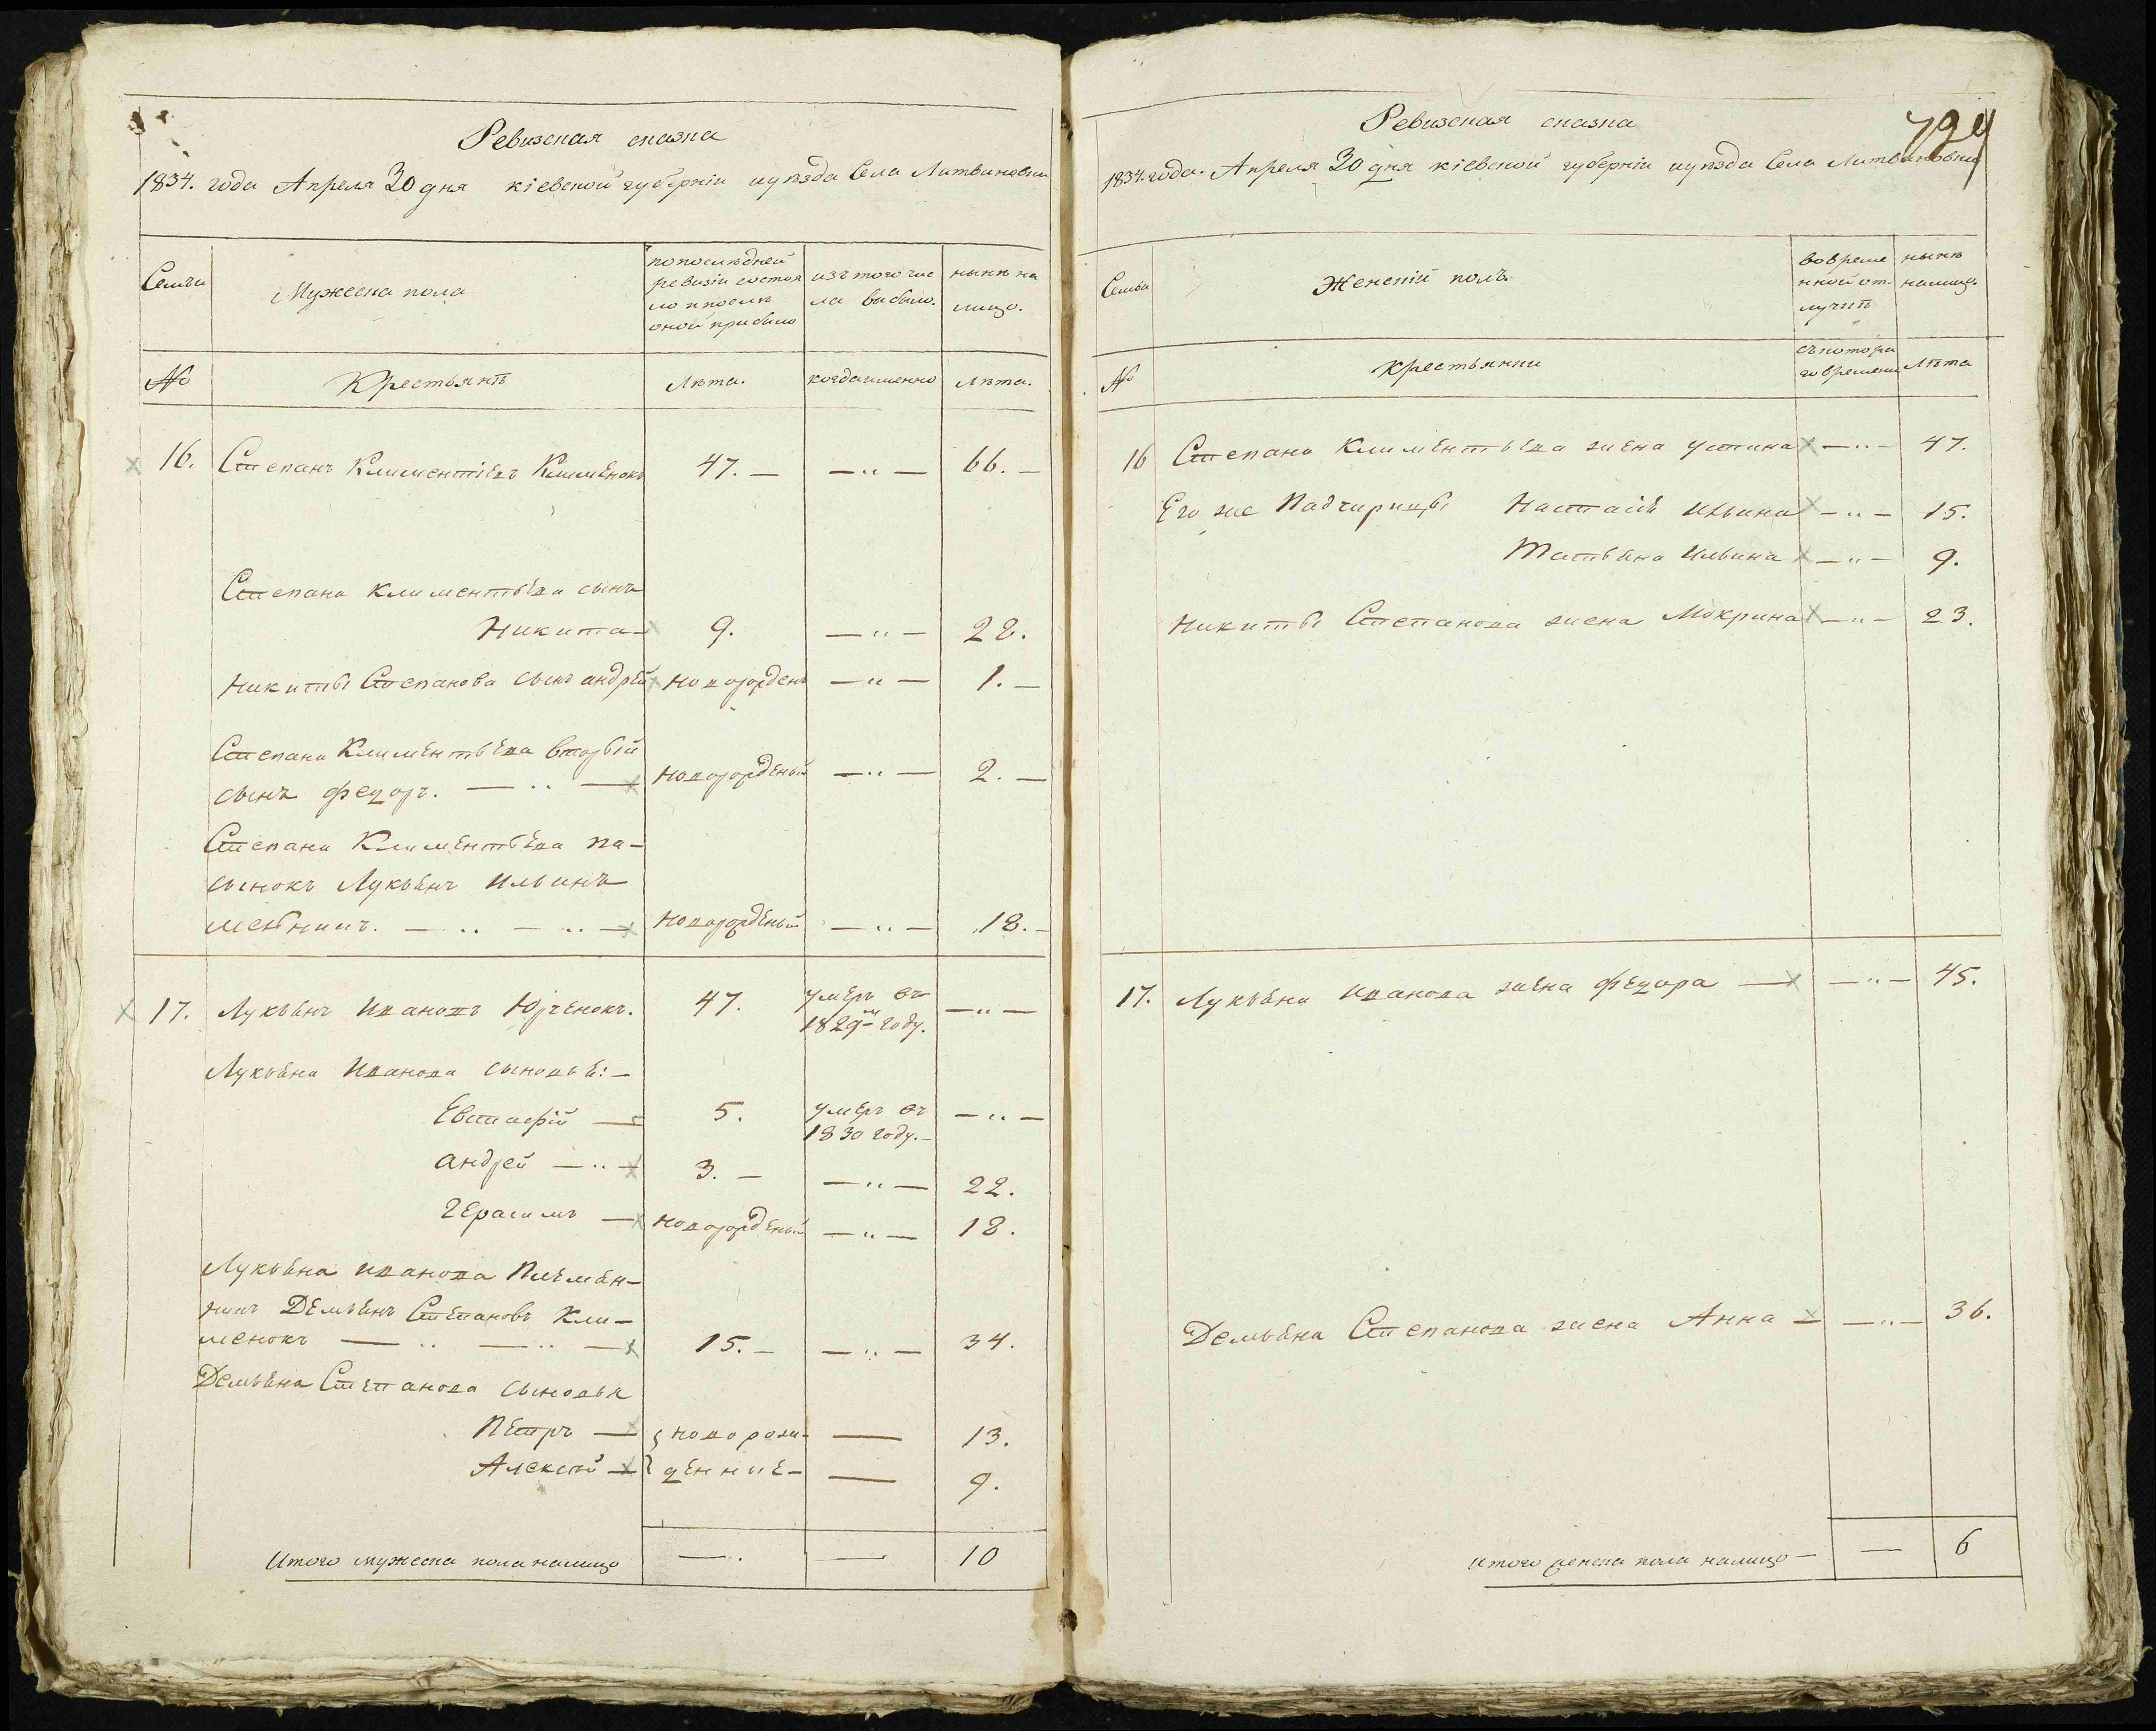 Ревизская сказка
1834. года Апреля 30 дня кіевской губерніи и уѣзда Села Литвиновки
Семьи
Мужеска пола
по послѣдней ревизіи состояло и послѣ оной прибыло
изъ того числа выбыло.
нынѣ на лицо.
№
Крестьянъ
Лѣта.
когда именно
Лѣта.
16. Степанъ Климентіевъ Клименокъ 47. — — " — 66. —
Степана Климентьева сынъ
Никита — 9. — " — 28.
Никиты Степанова сынъ андрей новорожденъ — " — 1. —
Степана Климентьева вторый
сынъ федоръ. — " — новорожденый — " — 2. —
Степана Климентьева па-
сынокъ Лукьянъ Ильинъ
— " — " — новорожденый — " — 18. —
17. Лукьянъ Ивановъ Юрченокъ. 47. умеръ въ — " —
1829 м году.
Лукьяна Иванова сыновья: —
Евстафій — 5. умеръ въ — " —
1830 году. —
андрей — " — 3. — — " — 22.
Герасимъ — новорожденый — " — 18.
Лукьяна иванова Племян-
никъ Демьянъ Степановъ Кли-
менокъ — " — " — 15. — — " — 34.
Демьяна Степанова сыновья
Петръ — новорож- — 13.
Алексей — денные — — 9.
Итого мужеска пола налицо — — 10
Ревизская сказка
794
1834. года. Апреля 30 дня кіевской губерніи и уѣзда Села Литвиновки
Семьи
Женскій полъ.
во временной отлучкѣ
нынѣ налицо.
№
Крестьянки
съ котораго времени
Лѣта
16 Степана Климентьева жена устина — " — 47.
Его же Падчирицы Настасія Ильина — " — 15.
Татьяна Ильина — " — 9.
Никиты Степанова жена Мокрина — " — 23.
17. Лукьяна иванова жена федора — — " — 45.
Демьяна Степанова жена Анна — — " — 36.
итого женска пола налицо — — 6